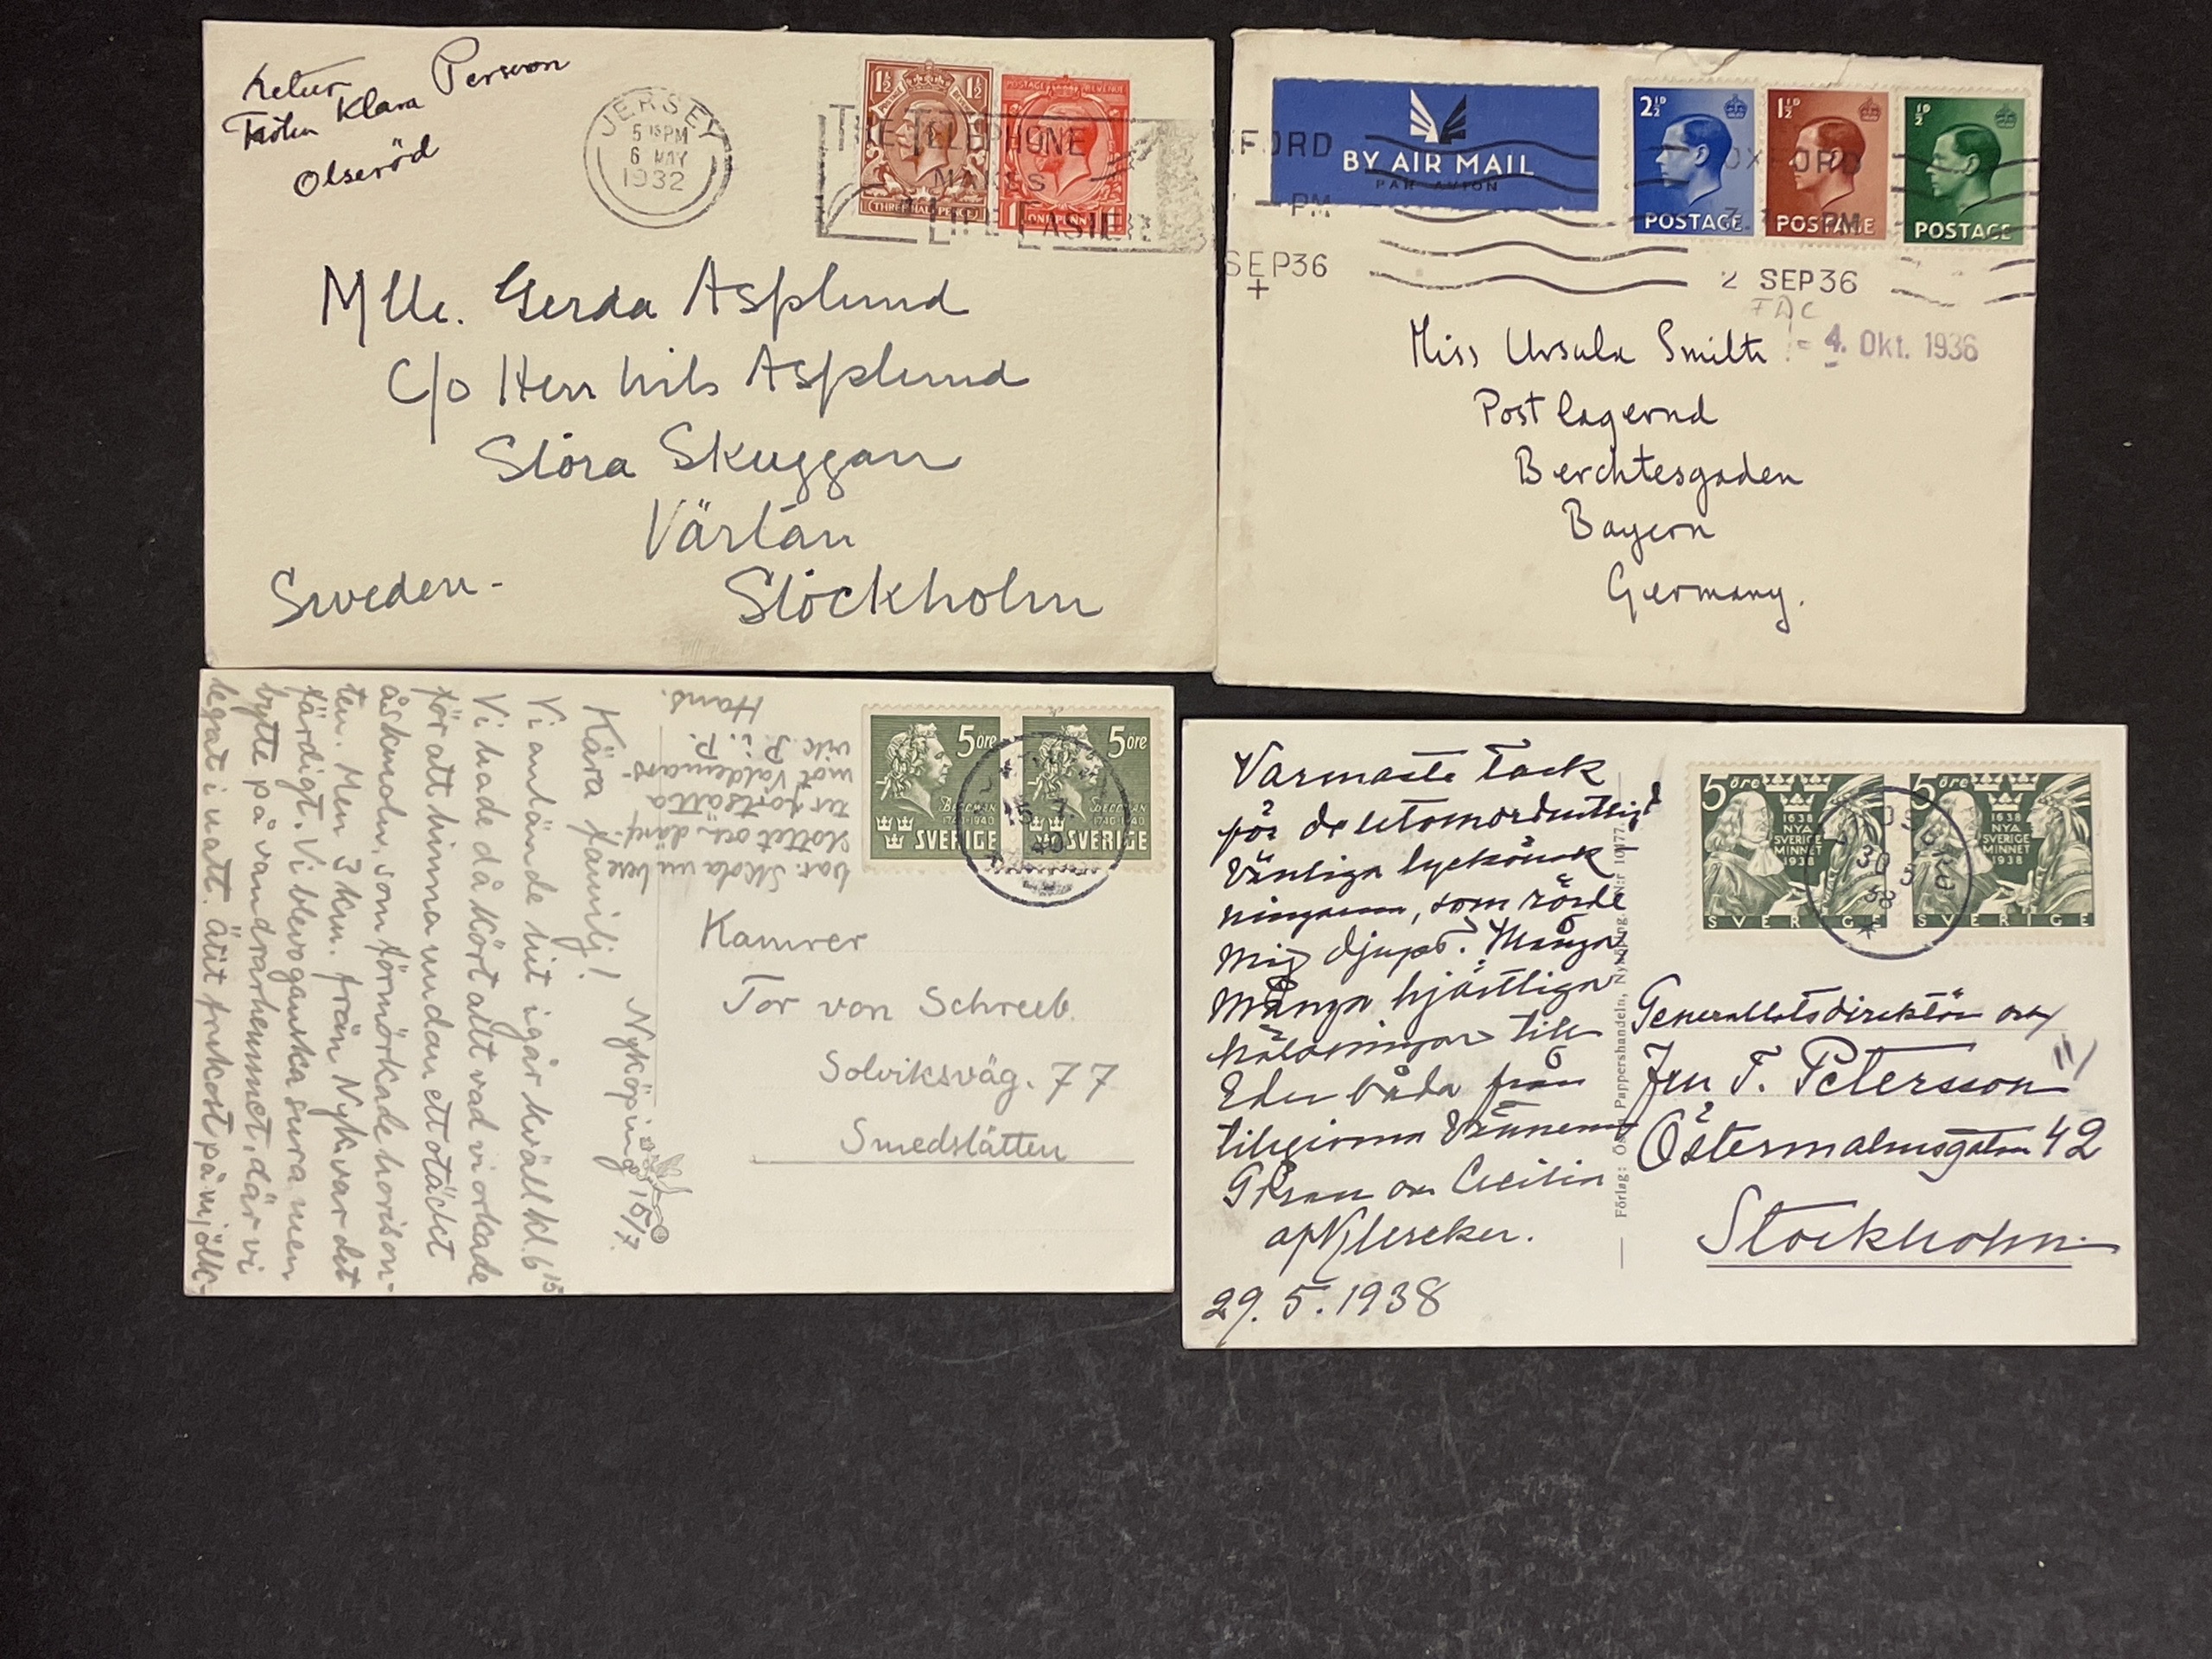 retur
Fröken Klara Persson
Olseröd
JERSEY
5 15 PM
6 MAY
1932
1½ 1½
THREE HALF PENCE
POSTAGE REVENUE
ONE PENNY
THE TELEPHONE
MAKES
LIFE EASIER
Mlle. Gerda Asplund
c/o Herr Nils Asplund
Stora Skuggan
Värtan
Sweden - Stockholm
BY AIR MAIL
PAR AVION
FORD
PM
SEP36
+
2½D
POSTAGE
1½D
POSTAGE
½D
POSTAGE
OXFORD
PM
2 SEP 36
FDC
- 4. Okt. 1936
Miss Ursula Smith
Postlagernd
Berchtesgaden
Bayern
Germany.
Nyköping 15/7.
Kära familj!
Vi anlände hit igår kväll kl. 6 15
Vi hade då kört allt vad vi orkade
för att hinna undan ett otäckt
åskmoln, som förmörkade horison-
ten. Men 3 km. från Nyk. var det
färdigt. Vi blevo ganska sura men
bytte på vandrarhemmet, där vi
legat i natt. Ätit frukost på mjölk-
bar. Skola nu bese
slottet och däref-
ter fortsätta
mot Valdemars-
vik. R.i.P.
Hans.
5 öre
BELLMAN
1740-1940
SVERIGE
5 öre
BELLMAN
1740-1940
SVERIGE
15. 7.
40
Kamrer
Tor von Schreeb.
Solviksväg. 77
Smedslätten
Varmaste tack
för de utomordentligt
vänliga lyckönsk
ningarna, som rörde
mig djupt. Många
Många hjärtliga
hälsningar till
Eder båda från
tillgivna vännerna
Göran och Cecilia
af Klercker.
29. 5. 1938
Pappershandeln, Nyköping.
Förlag:
5 öre
1638
NYA
SVERIGE
MINNET
1938
SVERIGE
5 öre
1638
NYA
SVERIGE
MINNET
1938
SVERIGE
30 5
38
Generallotsdirektör
Petersson
Östermalmsgatan 42
Stockholm.